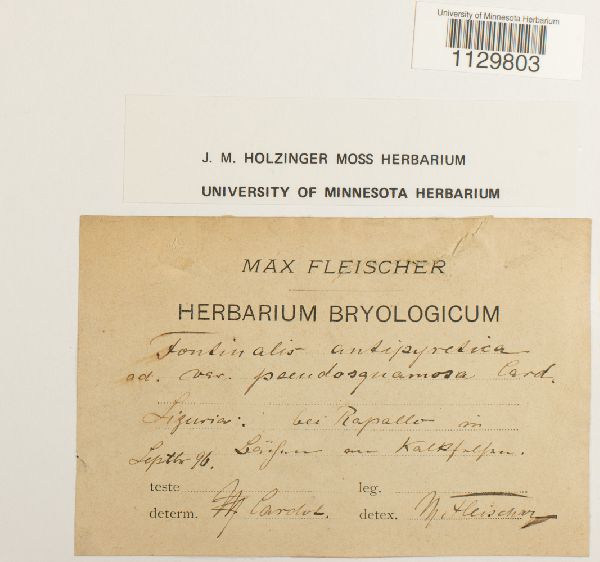 University of Minnesota Herbarium
1129803
J. M. HOLZINGER MOSS HERBARIUM
UNIVERSITY OF MINNESOTA HERBARIUM
MAX FLEISCHER
HERBARIUM BRYOLOGICUM
Fontinalis antipyretica
ad. var. pseudosquamosa Card.
Liguria: bei Rapallo in
Septbr 96. Bächen an Kalkfelsen.
teste leg.
determ. Cardot. detex. M. Fleischer